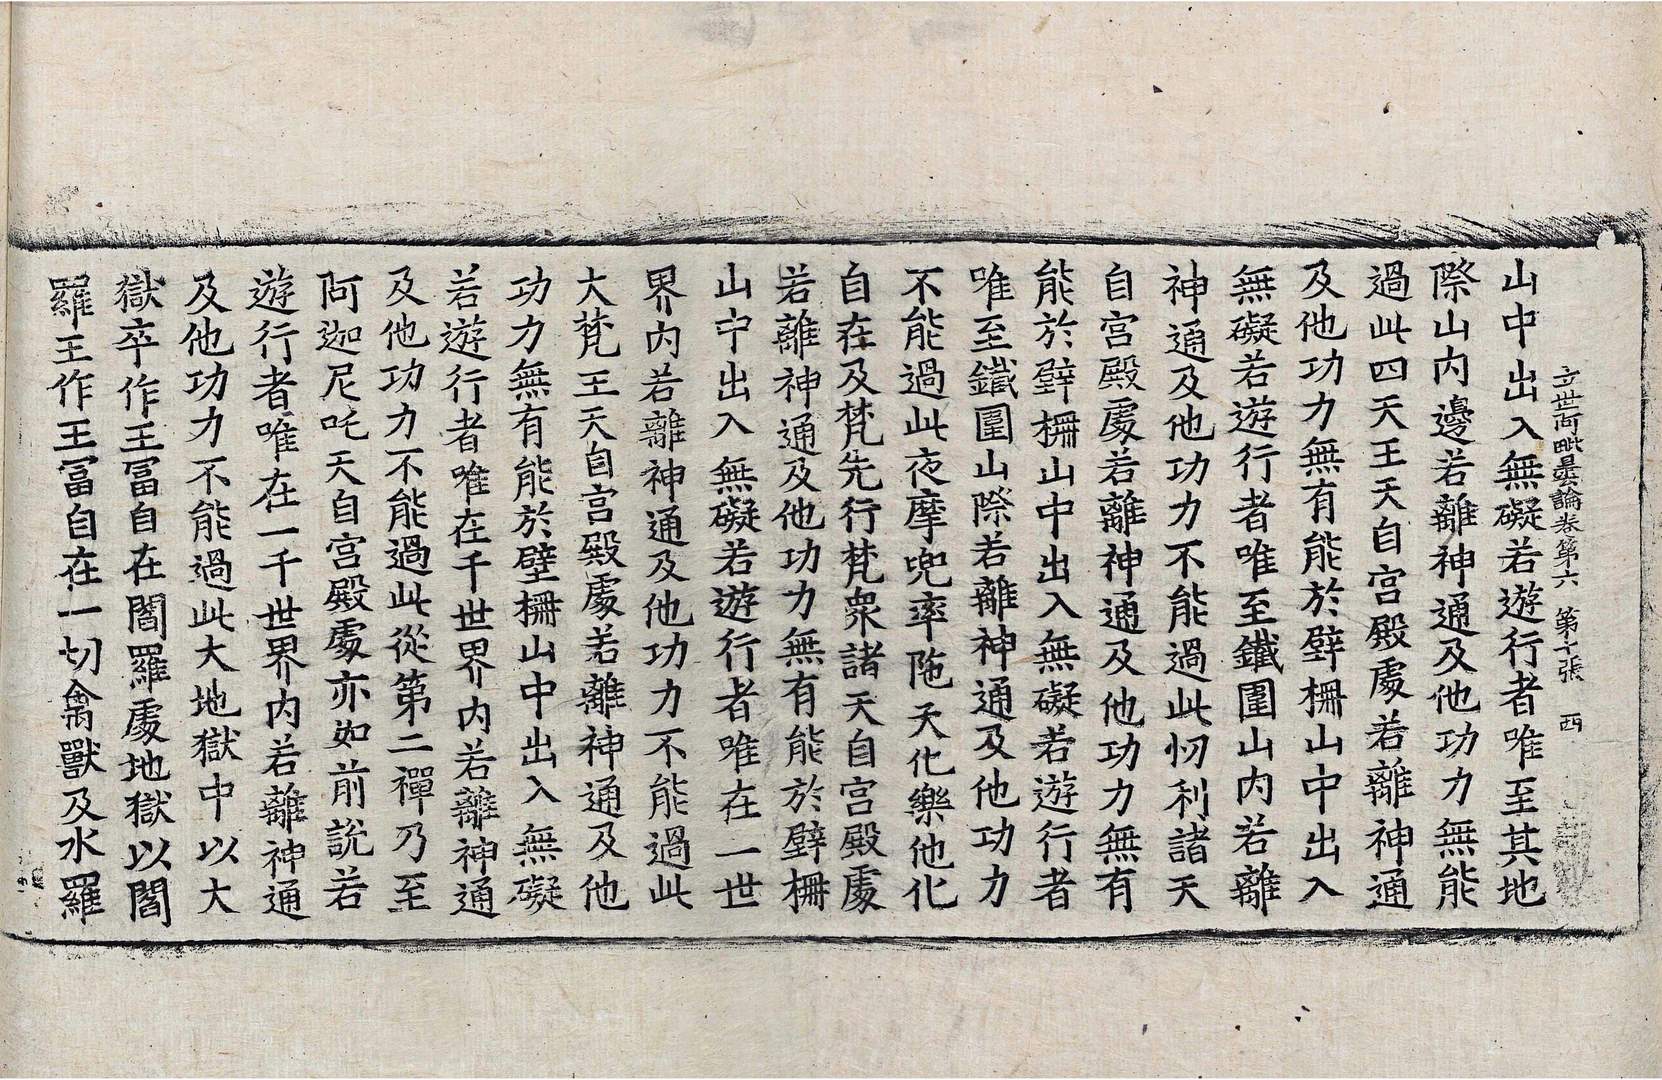 立世阿毗曇論卷第六 第十張 西
山中出入無礙若遊行者唯至其地
際山內邊若離神通及他功力無能
過此四天王天自宮殿處若離神通
及他功力無有能於壁柵山中出入
無礙若遊行者唯至鐵圍山內若離
神通及他功力不能過此忉利諸天
自宮殿處若離神通及他功力無有
能於壁柵山中出入無礙若遊行者
唯至鐵圍山際若離神通及他功力
不能過此夜摩兜率陁天化樂他化
自在及梵先行梵衆諸天自宮殿處
若離神通及他功力無有能於壁柵
山中出入無礙若遊行者唯在一世
界內若離神通及他功力不能過此
大梵王天自宮殿處若離神通及他
功力無有能於壁柵山中出入無礙
若遊行者唯在千世界內若離神通
及他功力不能過此從第二禪乃至
阿迦尼吒天自宮殿處亦如前說若
遊行者唯在一千世界內若離神通
及他功力不能過此大地獄中以大
獄卒作王冨自在閻羅處地獄以閻
羅王作王冨自在一切禽獸及水羅